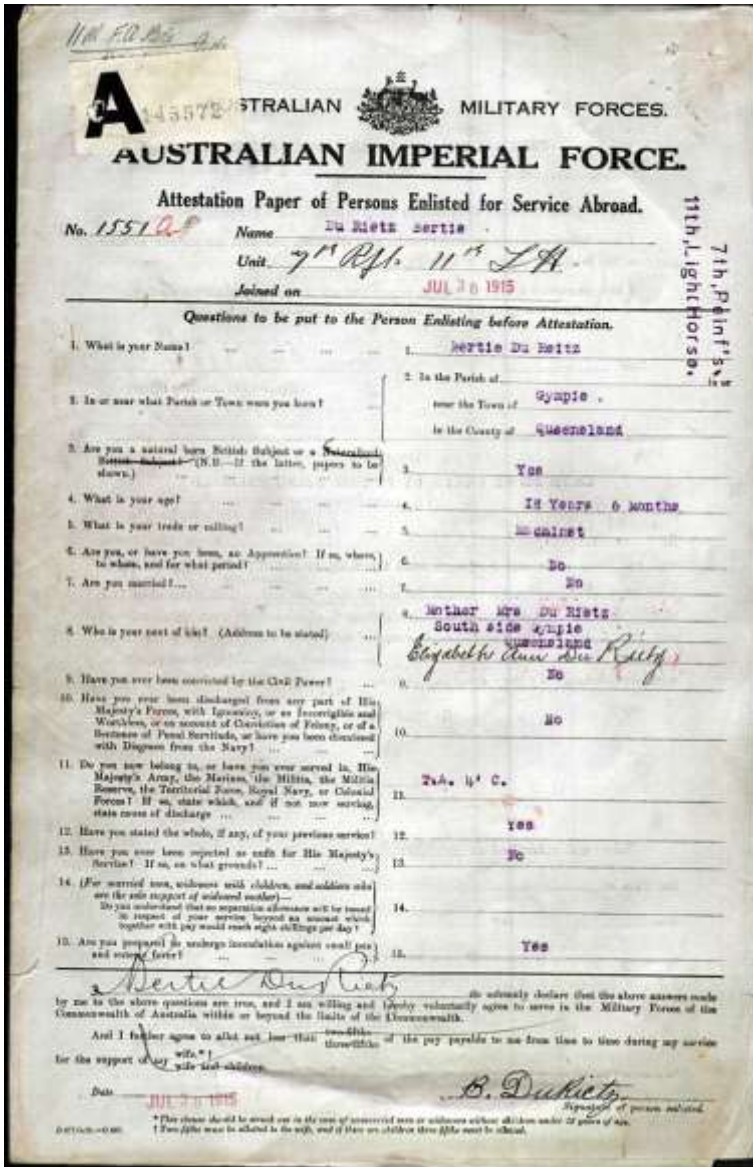 11th F.A. Bde
A
145572
AUSTRALIAN MILITARY FORCES.
AUSTRALIAN IMPERIAL FORCE.
Attestation Paper of Persons Enlisted for Service Abroad.
No. 1551 Name Du Rietz Bertie
Unit 7th Rft. 11th L H.
Joined on JUL 30 1915
7th, Reinf's.
11th, Light Horse.
Questions to be put to the Person Enlisting before Attestation.
1. What is your Name? ... 1. Bertie Du Reitz
2. In or near what Parish or Town were you born? 2. In the Parish of in or
near the Town of Gympie .
in the County of Queensland
3. Are you a natural born British Subject or a Naturalised
British Subject? (N.B.—If the latter, papers to be
shown.) 3. Yes
4. What is your age? 4. 18 Years 6 Months
5. What is your trade or calling? 5. Machinst
6. Are you, or have you been, an Apprentice? If so, where,
to whom, and for what period? 6. No
7. Are you married?... 7. No
8. Who is your next of kin? (Address to be stated) 8. Mother Mrs Du Rietz
South side Gympie
Queensland
Elizabeth Ann Du Rietz
9. Have you ever been convicted by the Civil Power? 9. No
10. Have you ever been discharged from any part of His
Majesty's Forces, with Ignominy, or as Incorrigible and
Worthless, or on account of Conviction of Felony, or of a
Sentence of Penal Servitude, or have you been dismissed
with Disgrace from the Navy? 10. No
11. Do you now belong to, or have you ever served in, His
Majesty's Army, the Marines, the Militia, the Militia
Reserve, the Territorial Force, Royal Navy, or Colonial
Forces? If so, state which, and if not now serving,
state cause of discharge 11. T.A. 4' C.
12. Have you stated the whole, if any, of your previous service? 12. Yes
13. Have you ever been rejected as unfit for His Majesty's
Service? If so, on what grounds? 13. No
14. (For married men, widowers with children, and soldiers who
are the sole support of widowed mother)—
Do you understand that no separation allowance will be issued
in respect of your service beyond an amount which
together with pay would reach eight shillings per day? 14.
15. Are you prepared to undergo inoculation against small pox
and enteric fever? 15. Yes
I, Bertie Du Rietz do solemnly declare that the above answers made
by me to the above questions are true, and I am willing and hereby voluntarily agree to serve in the Military Forces of the
Commonwealth of Australia within or beyond the limits of the Commonwealth.
And I further agree to allot not less than two-fifths
three-fifths of the pay payable to me from time to time during my service
for the support of my wife.*†
wife and children.
Date JUL 30 1915 B. DuRietz
Signature of person enlisted.
* This clause should be struck out in the case of unmarried men or widowers without children under 18 years of age.
† Two-fifths must be allotted to the wife, and if there are children three-fifths must be allotted.